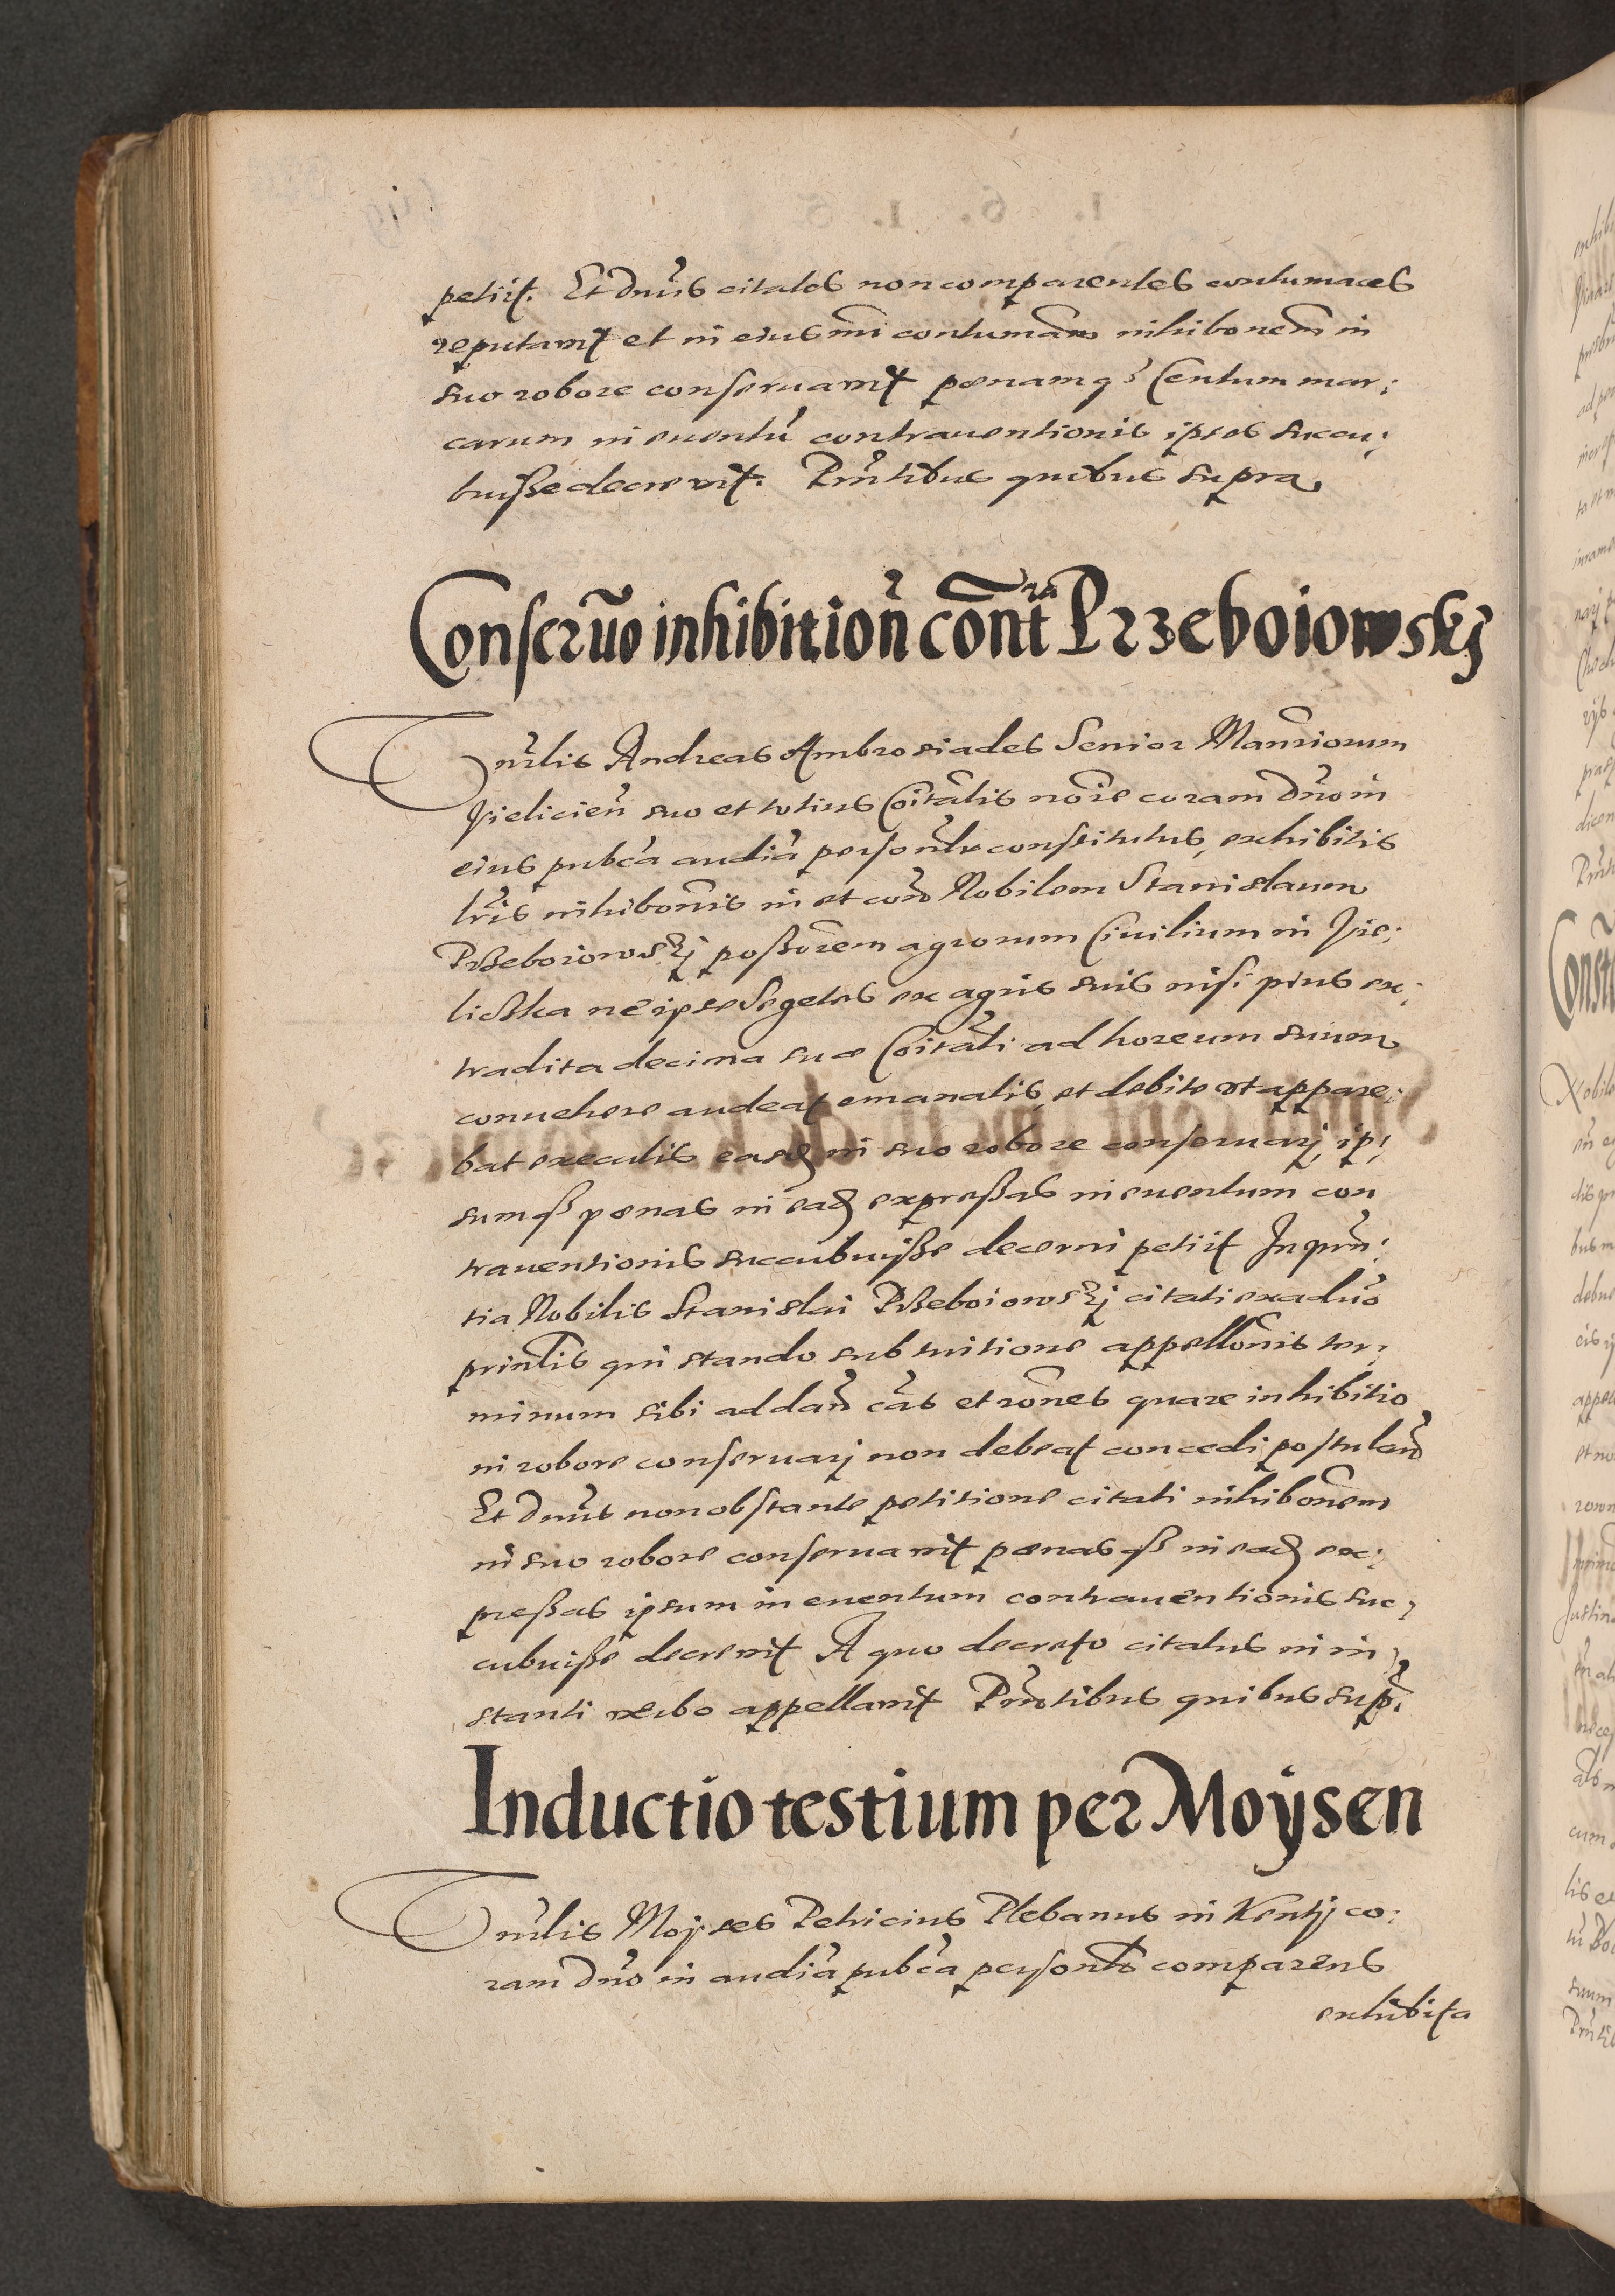 petiit. Et Dnus citatos non comparentes contumaces
reputavit et in eius mi contumam inhibonem in
suo robore conservavit poenamq Centum mar:
carum in eventu contraventionis ipsos succu:
buisse decrevit. Pntibus quibus supra
Conservo inhibition contra Przeboiowskj
Hnrlis Andreas Ambrosiades Senior Mansiorum
Vielicien suo et totius Coitatis noie coram Dno in
eius pubca audia personlr constitutus, exhibitis
lris inhibonis in et con Nobilem Stanislaum
Przeboiowskj possorem agrorum Civilium in Vie:
liczka ne ipse Segetes ex agris suis nisi prius ex:
tradita decima suae Coitati ad horeum suum
convehere audeat emanatis, et debite ut appare:
bat executis easd in suo robore conservarj, ip:
sumqz poenas in ead expressas in eventum con
traventionis succubuisse decerni petiit In pnn:
tia Nobilis Stanislai Przeboiowskj citati ex aduo
prinlis qui stando sub tuitione appellonis ter:
minum sibi ad dan cas et rones quare inhibitio
in robore conservarj non debeat concedi postulavit
Et Dnus non obstante petitione citati inhibonem
in suo robore conservavit poenas qz in ead ex:
pressas ipsum in eventum contraventionis suc:
cubuisse decrevit A quo decreto citatus in in
stanti verbo appellavit Pnntibus quibus sup.
Inductio testium per Moysen
Hnrlis Moyses Petricius Plebanus in Kentj co:
ram Dno in audia pubca personlr comparens
exhibita